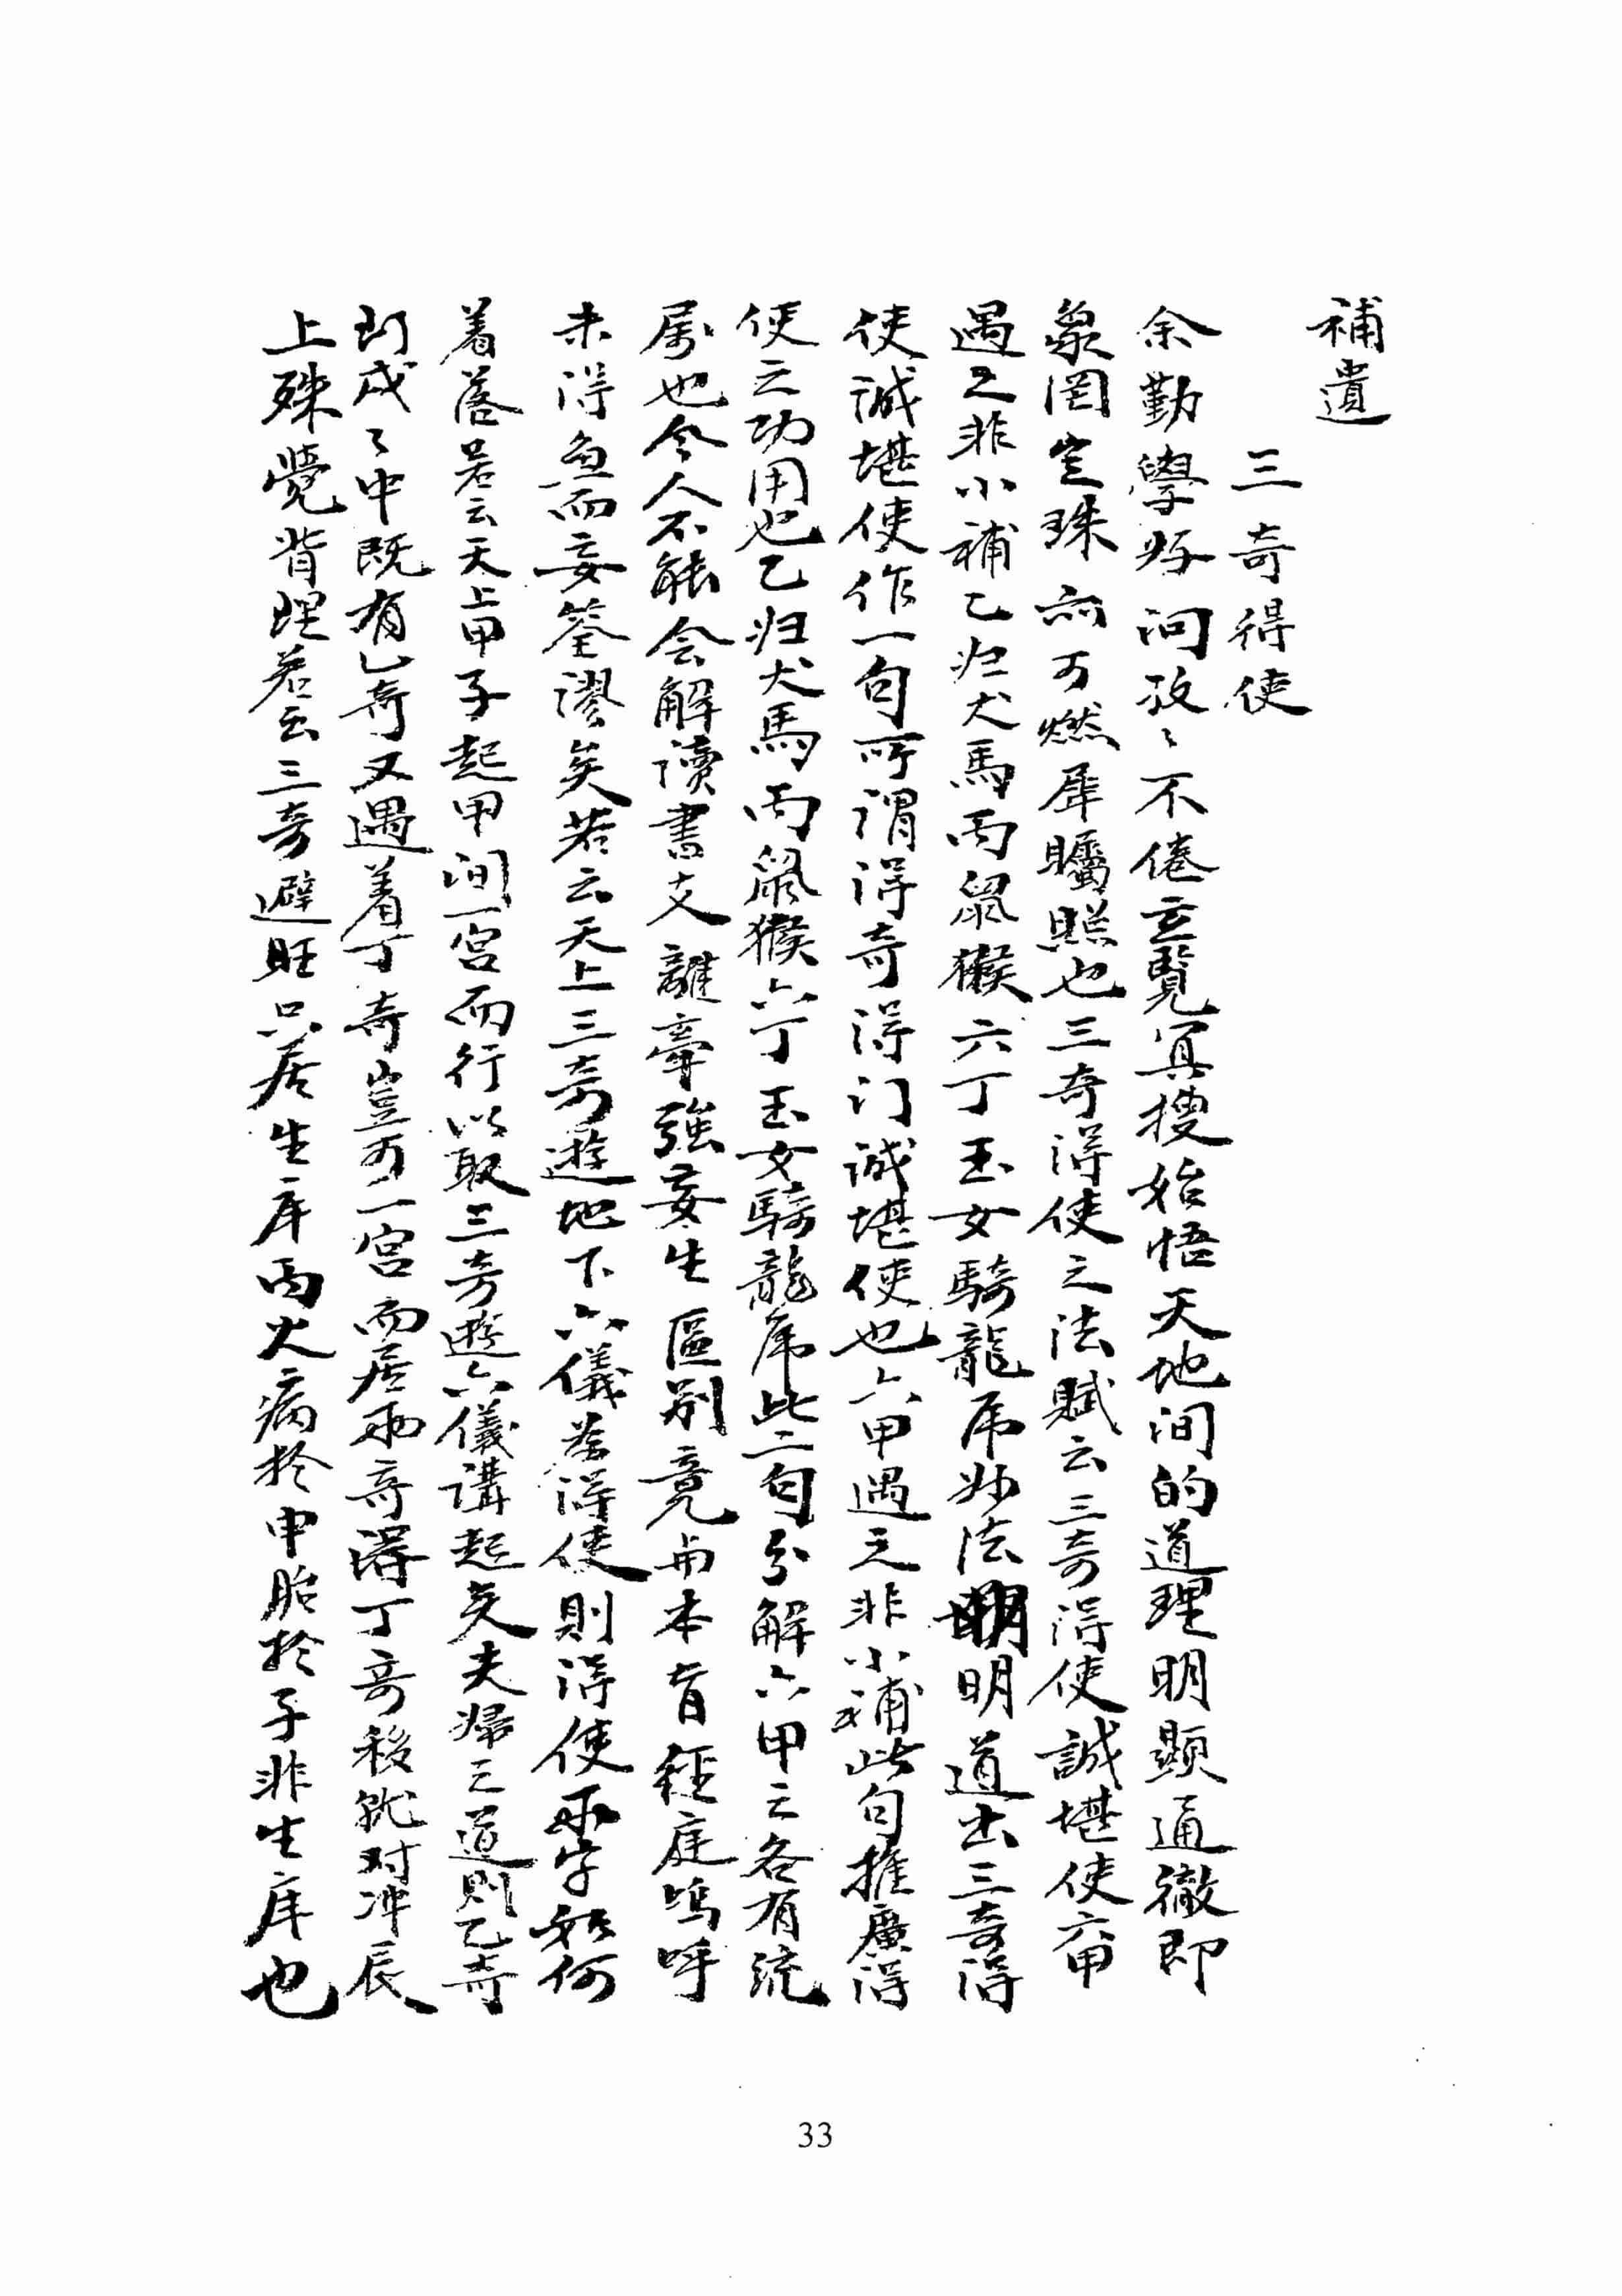 補遺
三奇得使
余勤學好问孜々不倦玄覽冥搜始悟天地间的道理明顯通徹即
象罔玄珠亦可燃犀矚照也三奇得使之法賦云三奇得使誠堪使六甲
遇之非小補乙归犬馬丙鼠猴六丁玉女騎龍虎妙法明明道出三奇得
使誠堪使作一句所谓得奇得门誠堪使也六甲遇之非小補此句推廣得
使之功用也乙归犬馬丙鼠猴六丁玉女騎龍虎此二句分解六甲之各有統
属也今人不能会解讀書支離牽強妄生區别竟与本旨徑庭嗚呼
未得魚而妄筌谬矣若云天上三奇遊地下六儀為得使則得使两字如何
着落若云天上甲子起甲间一宫而行以取三奇遊六儀講起矣夫婦之道則乙奇
到戌々中既有乙奇又遇着丁奇豈可一宫而居兩奇得丁奇移就对冲辰
上殊覺背理若云三奇避旺只居生库丙火病於申胎於子非生库也
33